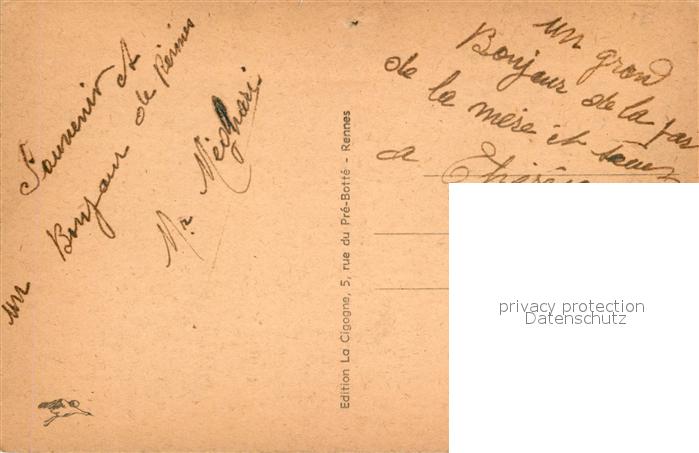 Souvenir et
un Bonjour de Rennes
Mr
un grand
Bonjour de la par
de la mère et
a Thérèse
Edition La Cigogne, 5, rue du Pré-Botté - Rennes
privacy protection
Datenschutz